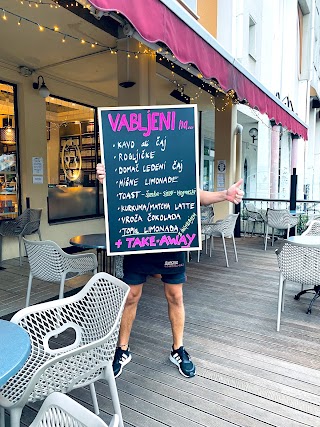 VABLJENI na...
• KAVO ali ČAJ
• ROGLJIČKE
• DOMAČ LEDENI ČAJ
• MIŠNE LIMONADE
• TOAST -
• KURKUMA/MATCHA LATTE
• VROČA ČOKOLADA
• TOPLA LIMONADA
+ TAKE-AWAY